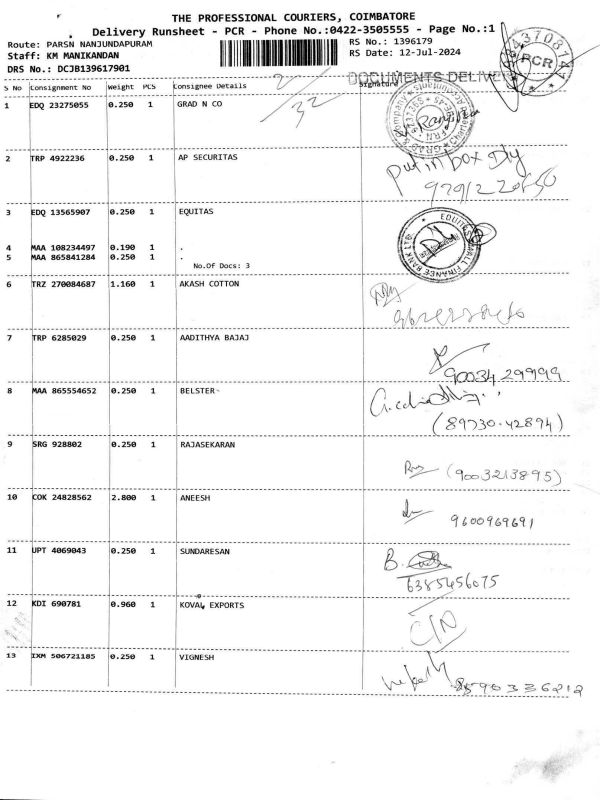 THE PROFESSIONAL COURIERS, COIMBATORE
Delivery Runsheet - PCR - Phone No.:0422-3505555 - Page No.:1
Route: PARSN NANJUNDAPURAM RS No.: 1396179
Staff: KM MANIKANDAN RS Date: 12-Jul-2024
DRS No.: DCJB139617901
DOCUMENTS DELIVE
PCR
S No Consignment No Weight PCS Consignee Details Signature
2/32
1 EDQ 23275055 0.250 1 GRAD N CO
2 TRP 4922236 0.250 1 AP SECURITAS
put in box
3 EDQ 13565907 0.250 1 EQUITAS
EQUITAS SMALL FINANCE BANK LTD
4 MAA 108234497 0.190 1 .
5 MAA 865841284 0.250 1 .
No.Of Docs: 3
6 TRZ 270084687 1.160 1 AKASH COTTON
7 TRP 6285029 0.250 1 AADITHYA BAJAJ
90034 29999
8 MAA 865554652 0.250 1 BELSTER
(89730-42894)
9 SRG 928802 0.250 1 RAJASEKARAN
(9003213895)
10 COK 24828562 2.800 1 ANEESH
9600969691
11 UPT 4069043 0.250 1 SUNDARESAN
6385456075
12 KDI 690781 0.960 1 KOVAL EXPORTS
13 IXM 506721185 0.250 1 VIGNESH